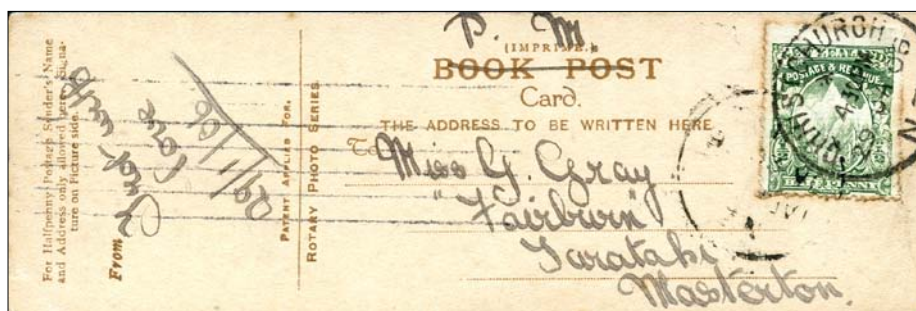 For Halfpenny Postage Sender's Name
and Address only allowed here. Signa-
ture on Picture side.
From
Much
love
29/1/06
PATENT APPLIED FOR.
ROTARY PHOTO SERIES.
P. M
(IMPRIMÉ.)
BOOK POST
Card.
THE ADDRESS TO BE WRITTEN HERE
To
Miss G. Gray
"Fairburn"
Taratahi
Masterton.
POSTAGE & REVENUE
HALF PENNY
CHRISTCHURCH